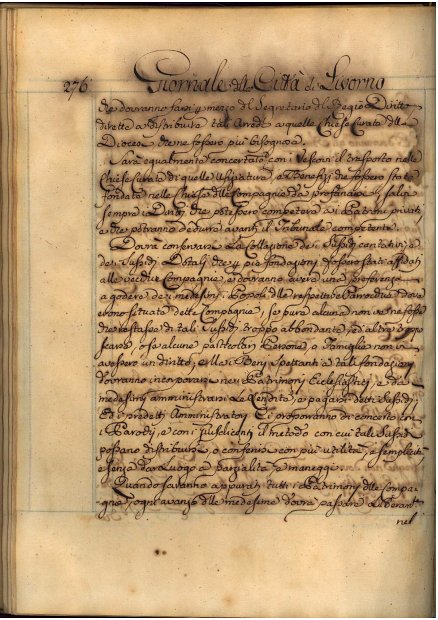 276
Giornale della Città di Livorno
che dovranno farsi per mezzo del Segretario del Regio Diritto
diretta a distribuire tali Arredi a quelle Chiese Curate della
Diocesi che ne fossero più bisognose.
Sarà egualmente concertato con i Vescovi il trasporto nelle
Chiese Curate di quelle Ufiziature, o Benefizi che fossero stati
fondati nelle Chiese delle Compagnie da profanarsi, salvi
sempre i Diritti che potessero competere ai Patroni privati
e che potranno dedurre avanti il Tribunale competente.
Dovrà conservarsi la collazione dei Sussidi caritativi, e
dei Sussidj Dotali che per pie fondazioni fossero stati affidati
alle vecchie Compagnie, e dovranno avere una preferenza
a godere dei medesimi i Popoli delle respettive Parrocchie dove
erono situate dette Compagnie, se pure alcuna non ve ne fosse
che restasse di tali Sussidj troppo abbondante, ed altre troppo
scarse, o se alcune particolari Persone, o Famiglie non vi
avessero un diritto; e i Beni spettanti a tali fondazioni
dovranno incorporarsi nei Patrimonj Ecclesiastici, e da
medesimi amministrarsi le Rendite, e pagarsi detti Sussidj;
Ed i predetti Amministratori Ci proporranno di concerto con
i Parochi, e con i Giusdicenti il metodo con cui tali Sussidj
possano distribuirsi, o conferirsi con più utilità, e semplicità
e senza dar Luogo a parzialità, e maneggi.
Quando saranno appurati tutti i Patrimonj delle Compa-
gnie, ogni avanzo delle medesime dovrà passare
nel